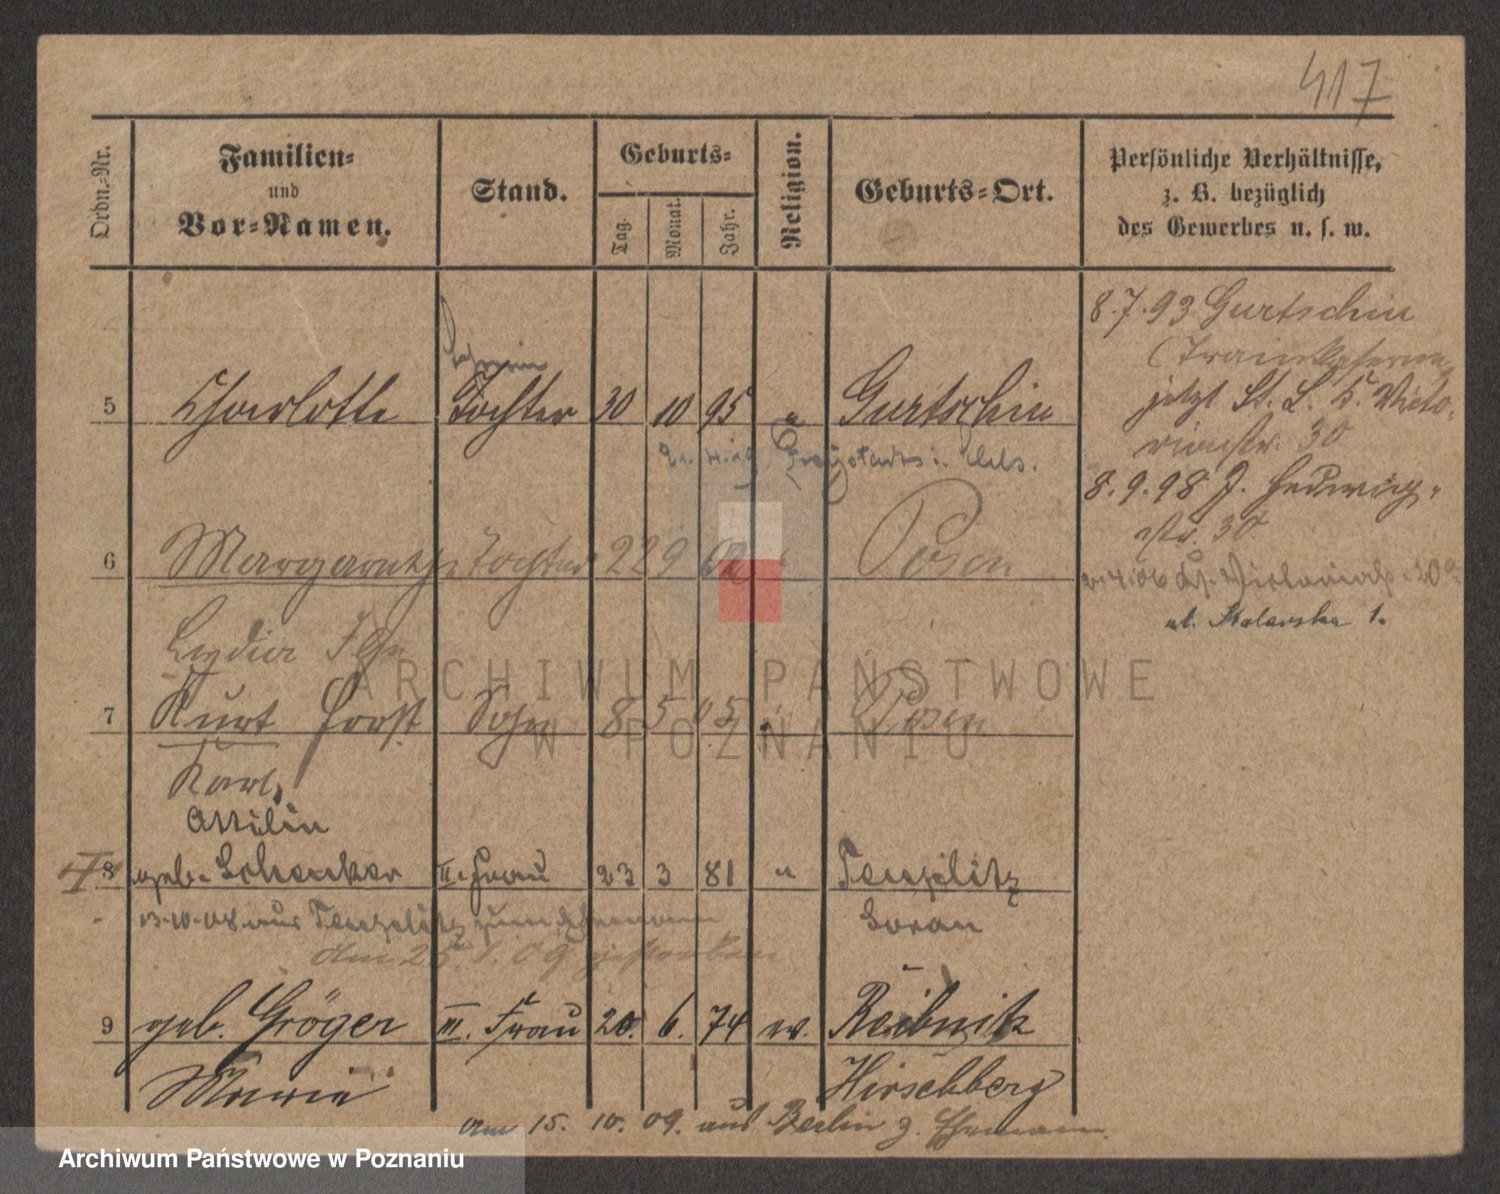 417
Ordn.-Nr.
Familien-
und
Vor-Namen.
Stand.
Geburts-
Tag.
Monat.
Jahr.
Religion.
Geburts-Ort.
Persönliche Verhältnisse,
z. B. bezüglich
des Gewerbes u. s. w.
8.7.93 Gurtschin
jetzt St. L. B. Victo-
riastr. 30
8.9.98 J. Hedwig-
str. 30
ul. Stolarska 1.
5 Charlotte Tochter 30 10 95 " Gurtschin
6 Margarethe Tochter 22 9 02 " Posen
Lydia Ilse
7 Kurt Horst Sohn 8 5 05 " Posen
Karl
Ottilie
8 geb. Schenker II. Frau 23 3 81 " Teuplitz
13.10.08 aus Teuplitz zum Ehemann
Sorau
am 25.1.09 gestorben
9 geb. Gröger III. Frau 20. 6. 74 ev. Reibnitz
Marie
Hirschberg
am 15. 10. 09. aus Berlin z. Ehemann
ARCHIWUM PAŃSTWOWE
W POZNANIU
Archiwum Państwowe w Poznaniu